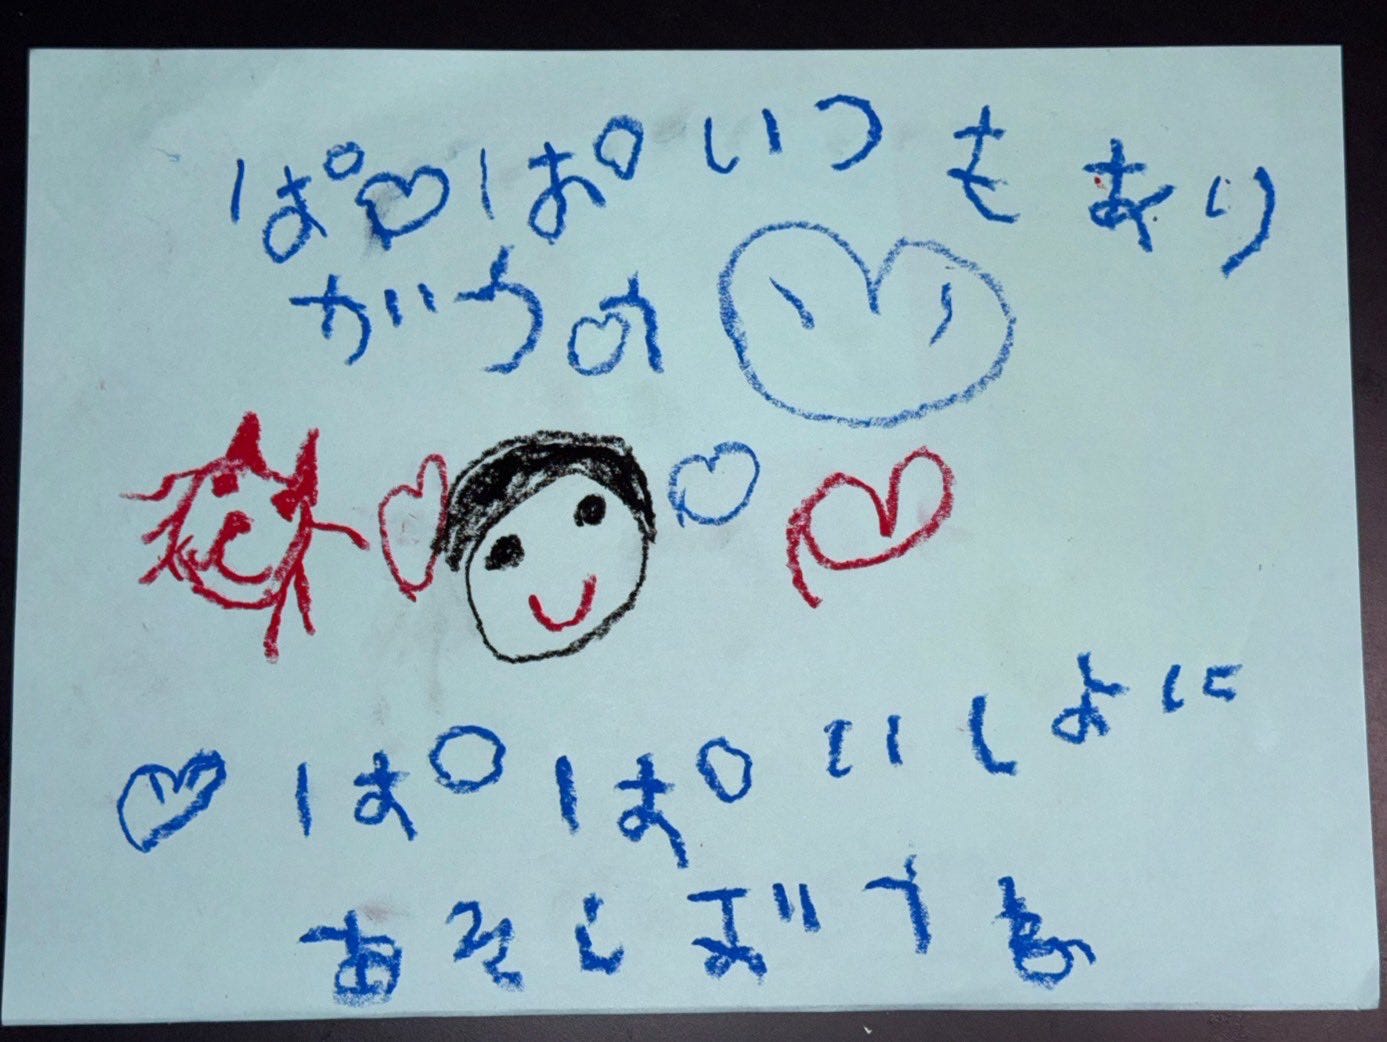 ぱ♡ぱいつもあり
が
♡ぱぱいしよに
あそしぼ